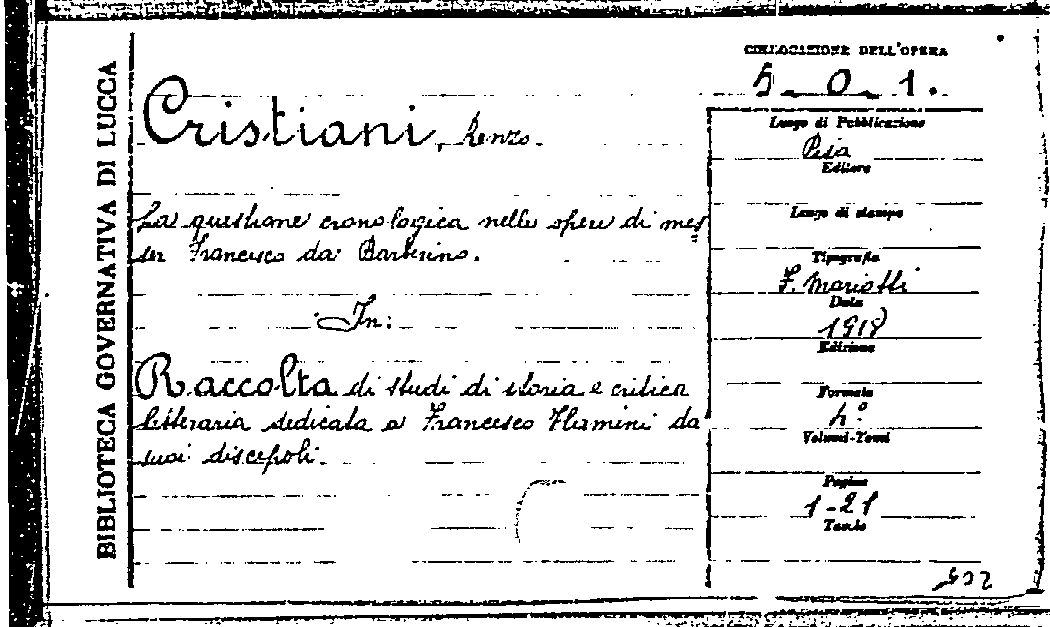 BIBLIOTECA GOVERNATIVA DI LUCCA
COLLOCAZIONE DELL'OPERA
5. 0. 1.
Cristiani, Renzo.
La questione cronologica nelle opere di mes
ser Francesco da Barberino.
In:
Raccolta di studi di storia e critica
letteraria dedicata a Francesco Flamini da
suoi discepoli.
Luogo di Pubblicazione
Pisa
Editore
Luogo di stampa
Tipografia
F. Mariotti
Data
1918
Edizione
Formato
4º
Volumi-Tomi
Pagine
1-21
Tavole